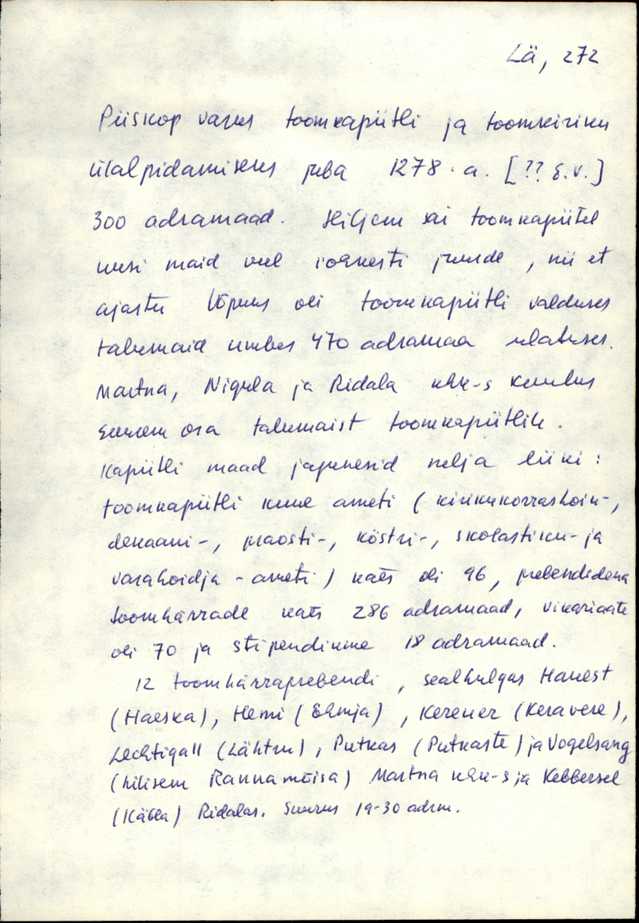 Lä, 272
Piiskop varus toomkapiitli ja toomkiriku
ülalpidamiseks juba 1278. a. [?? E.V.]
300 adramaad. Hiljem sai toomkapiitel
uusi maid veel rohkesti juurde, nii et
ajastu lõpus oli toomkapiitli valduses
talumaid umbes 470 adramaa ulatuses.
Martna, Nigula ja Ridala khk-s kuulus
suurem osa talumaist toomkapiitlile.
Kapiitli maad jagunesid nelja liiki:
toomkapiitli kuue ameti (kirikukorrashoiu-,
dekaani-, praosti-, köstri-, skolastiku- ja
varahoidja-ameti) käes oli 96, prebendidena
toomhärrade käes 286 adramaad, vikariaate
oli 70 ja stipendiume 18 adramaad.
12 toomhärraprebendi, sealhulgas Hanest
(Haeska), Hemi (Ehmja), Kerever (Keravere),
Lechtigall (Lähtru), Putkas (Putkaste) ja Vogelsang
(hilisem Rannamõisa) Martna khk-s ja Kebbersel
(Käbla) Ridalas. Suurus 19-30 adrm.